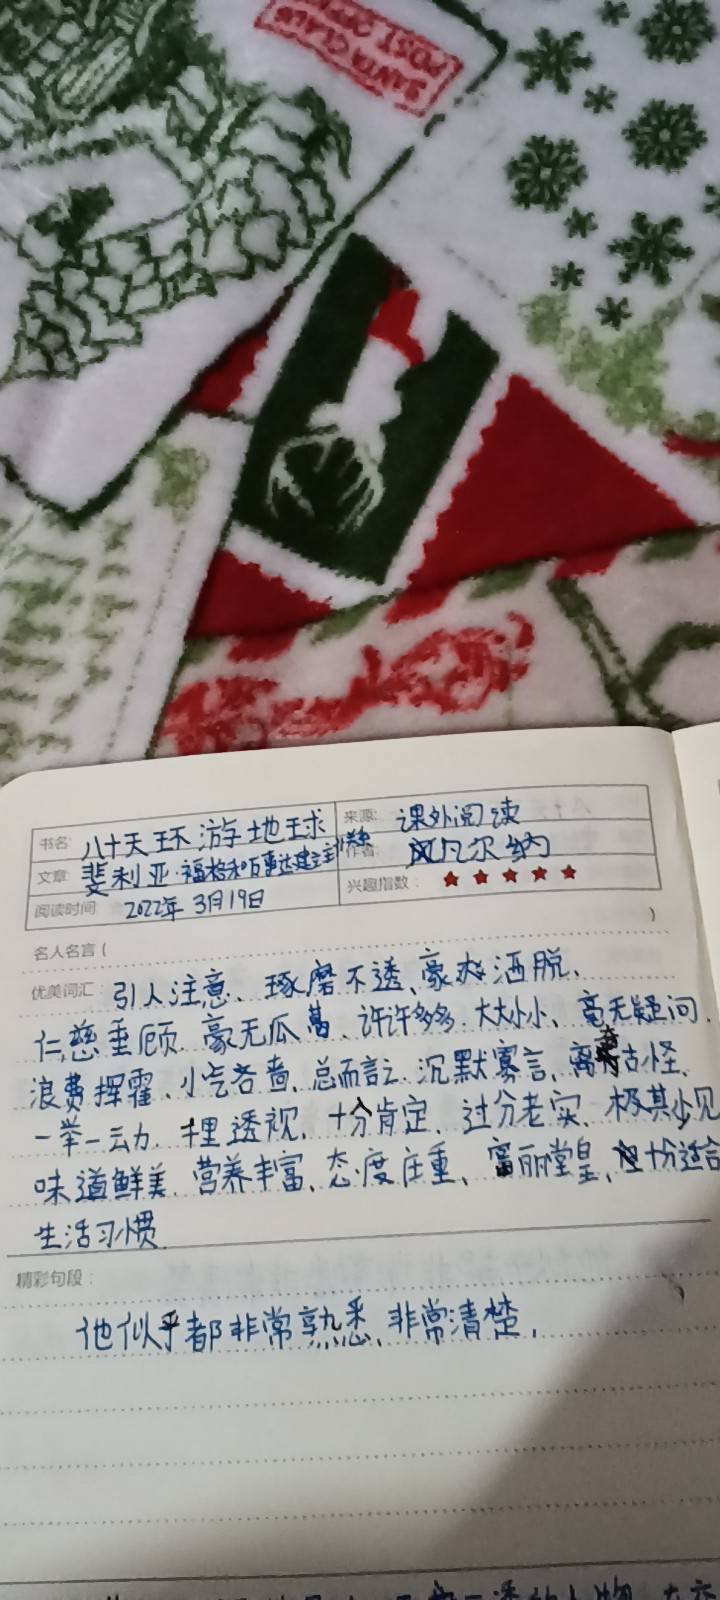 SANTA CLAUS
POST OFFICE
书名: 八十天环游地球
来源: 课外阅读
文章: 斐利亚·福格和万事达建立主仆关系
作者: 凡尔纳
阅读时间 2022年3月19日
兴趣指数: ★★★★★
名人名言( )
优美词汇: 引人注意、琢磨不透、豪爽洒脱、
仁慈垂顾、豪无瓜葛、许许多多、大大小小、毫无疑问、
浪费挥霍、小气吝啬、总而言之、沉默寡言、离奇古怪、
一举一动、十分肯定、过分老实、极其少见
味道鲜美、营养丰富、态度庄重、富丽堂皇、十分适合
生活习惯
精彩句段:
他似乎都非常熟悉、非常清楚,